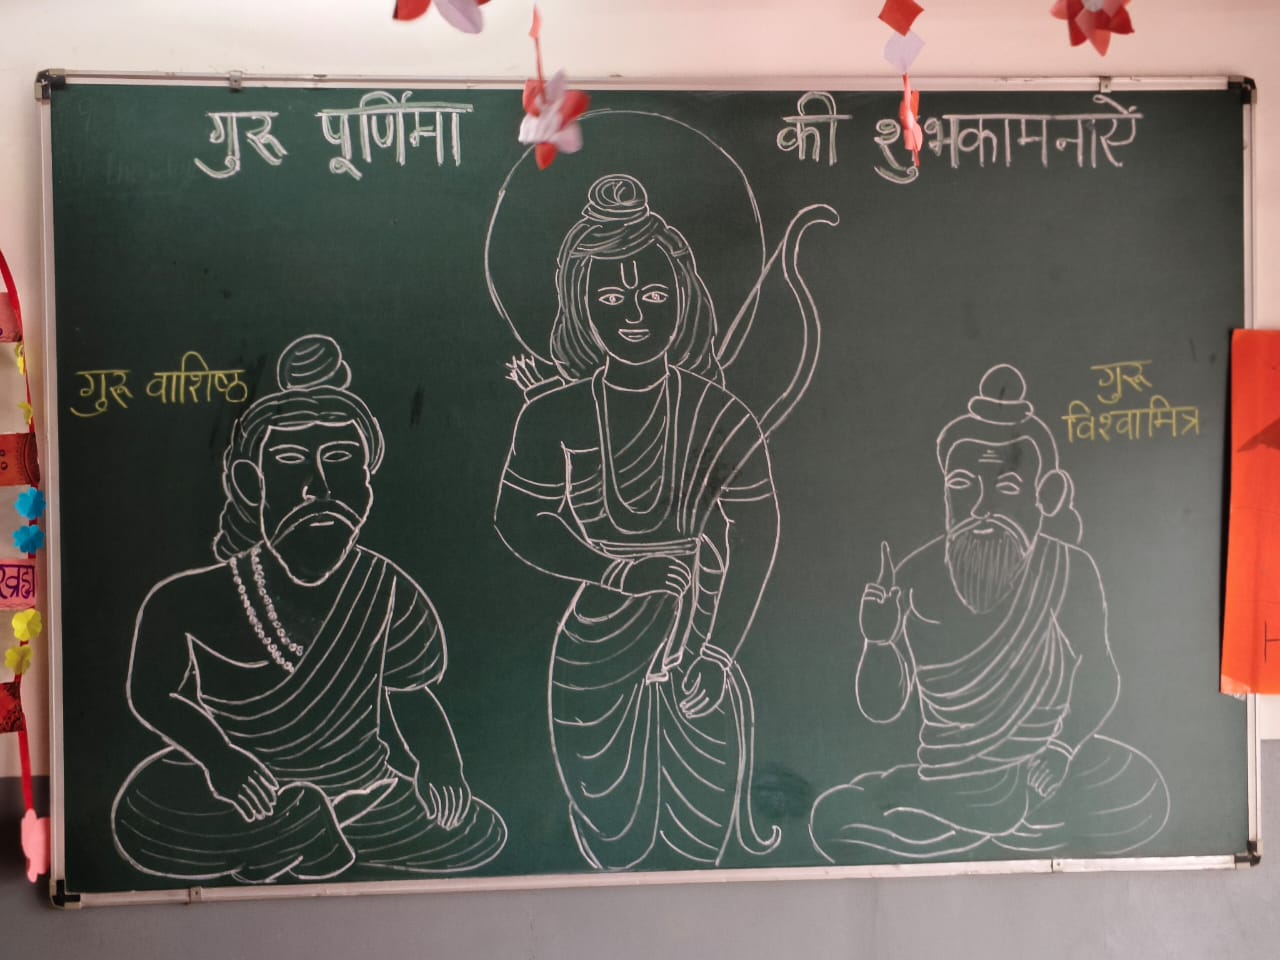 गुरू पूर्णिमा की शुभकामनाऐं
गुरू वाशिष्ठ
गुरू
विश्वामित्र